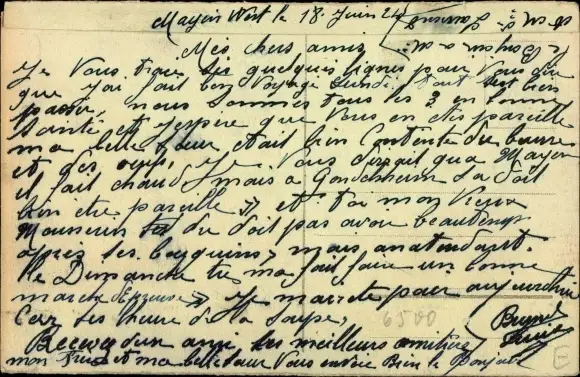 Mayen West le 18 Juin 24
Mes chers amis
Je Vous trace ses quelques lignes pour Vous dire
que j'ai fait bon Voyage Lundi tout s'est bien
passer, nous sommes tous les 3 en bonne
santé et j'espère que Vous en etes pareille
ma belle soeur etait bien Contente du beurre
et des oeufs, je Vous dirait qua Mayen
il fait chaud mais a Gondelsheim sa doit
bien etre pareille et toi mon Vieux
tu du doit pas avoir beaucoup
après les bouquins mais anatendant
le Dimanche tu ma fait faire une bonne
marche je marrete pour aujourd'hui
Car ses l'heure de la soupe,
Recevez deux amis les meilleurs amitiés
mon Frere et ma belle soeur Vous envoie Bien le Bonjour
6500
E